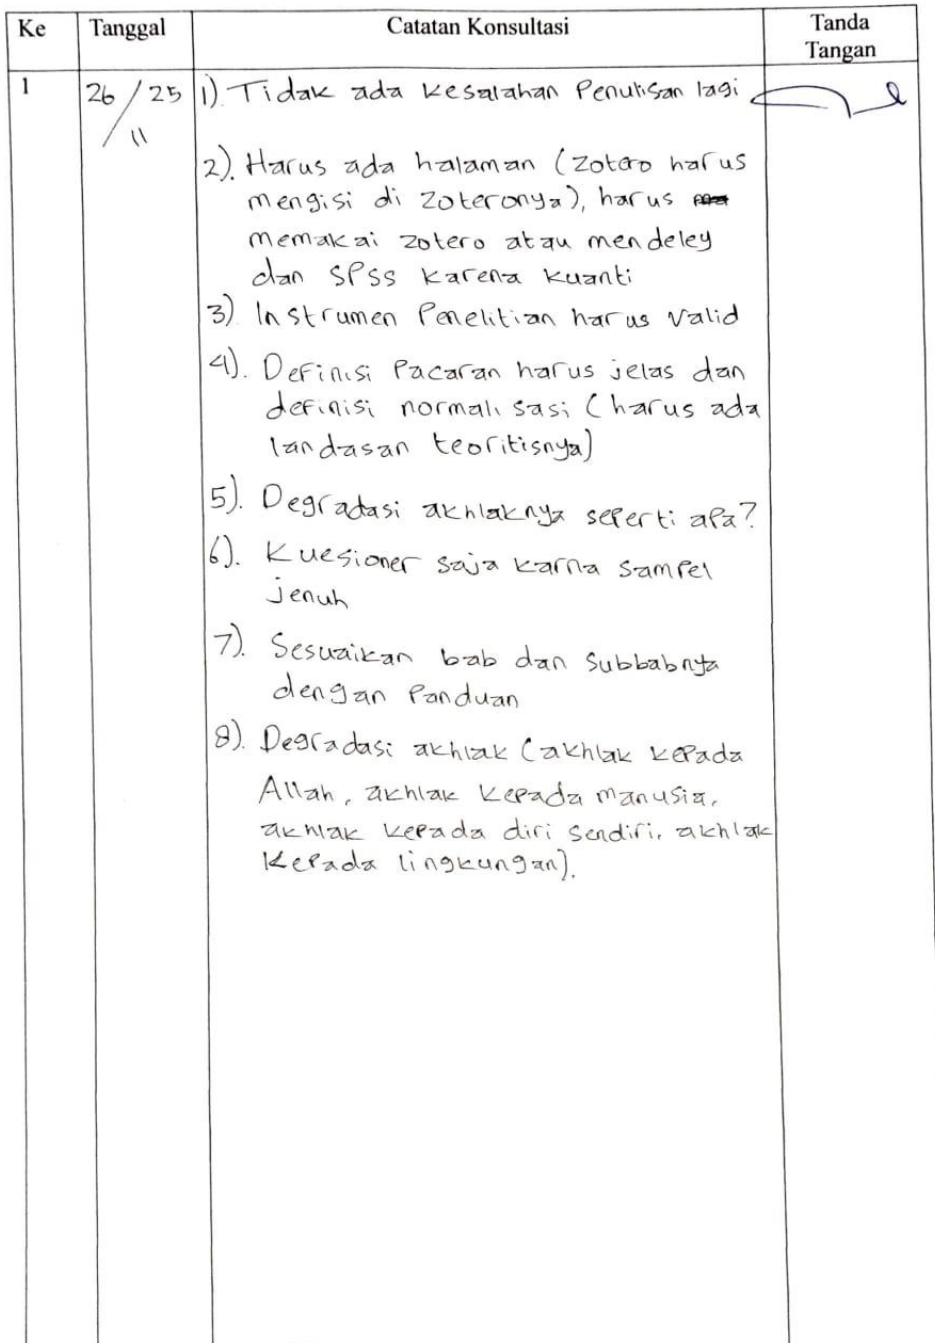 Ke Tanggal Catatan Konsultasi Tanda Tangan
1 26/11 25 1). Tidak ada kesalahan Penulisan lagi
2). Harus ada halaman (zotero harus
mengisi di zoteronya), harus
memakai zotero atau mendeley
dan SPSS karena kuanti
3) Instrumen Penelitian harus valid
4). Definisi Pacaran harus jelas dan
definisi normalisasi (harus ada
landasan teoritisnya)
5). Degradasi akhlaknya seperti apa?
6). Kuesioner saja karna sampel
jenuh
7). Sesuaikan bab dan subbabnya
dengan Panduan
8). Degradasi akhlak (akhlak kepada
Allah, akhlak kepada manusia,
akhlak kepada diri sendiri, akhlak
kepada lingkungan).